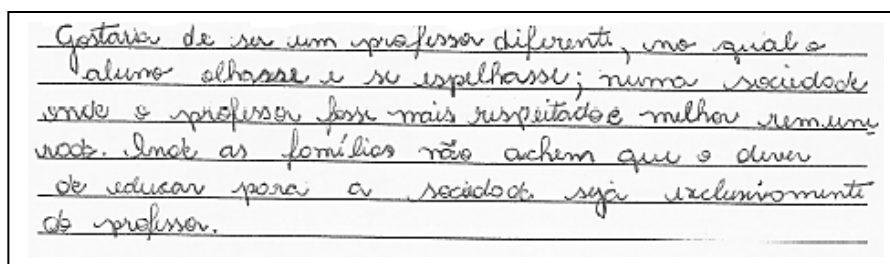 Gostaria de ser um professor diferente, no qual o
aluno olhasse e se espelhasse; numa sociedade
onde o professor fosse mais respeitado e melhor remune
rado. Onde as famílias não achem que o dever
de educar para a sociedade seja exclusivamente
do professor.